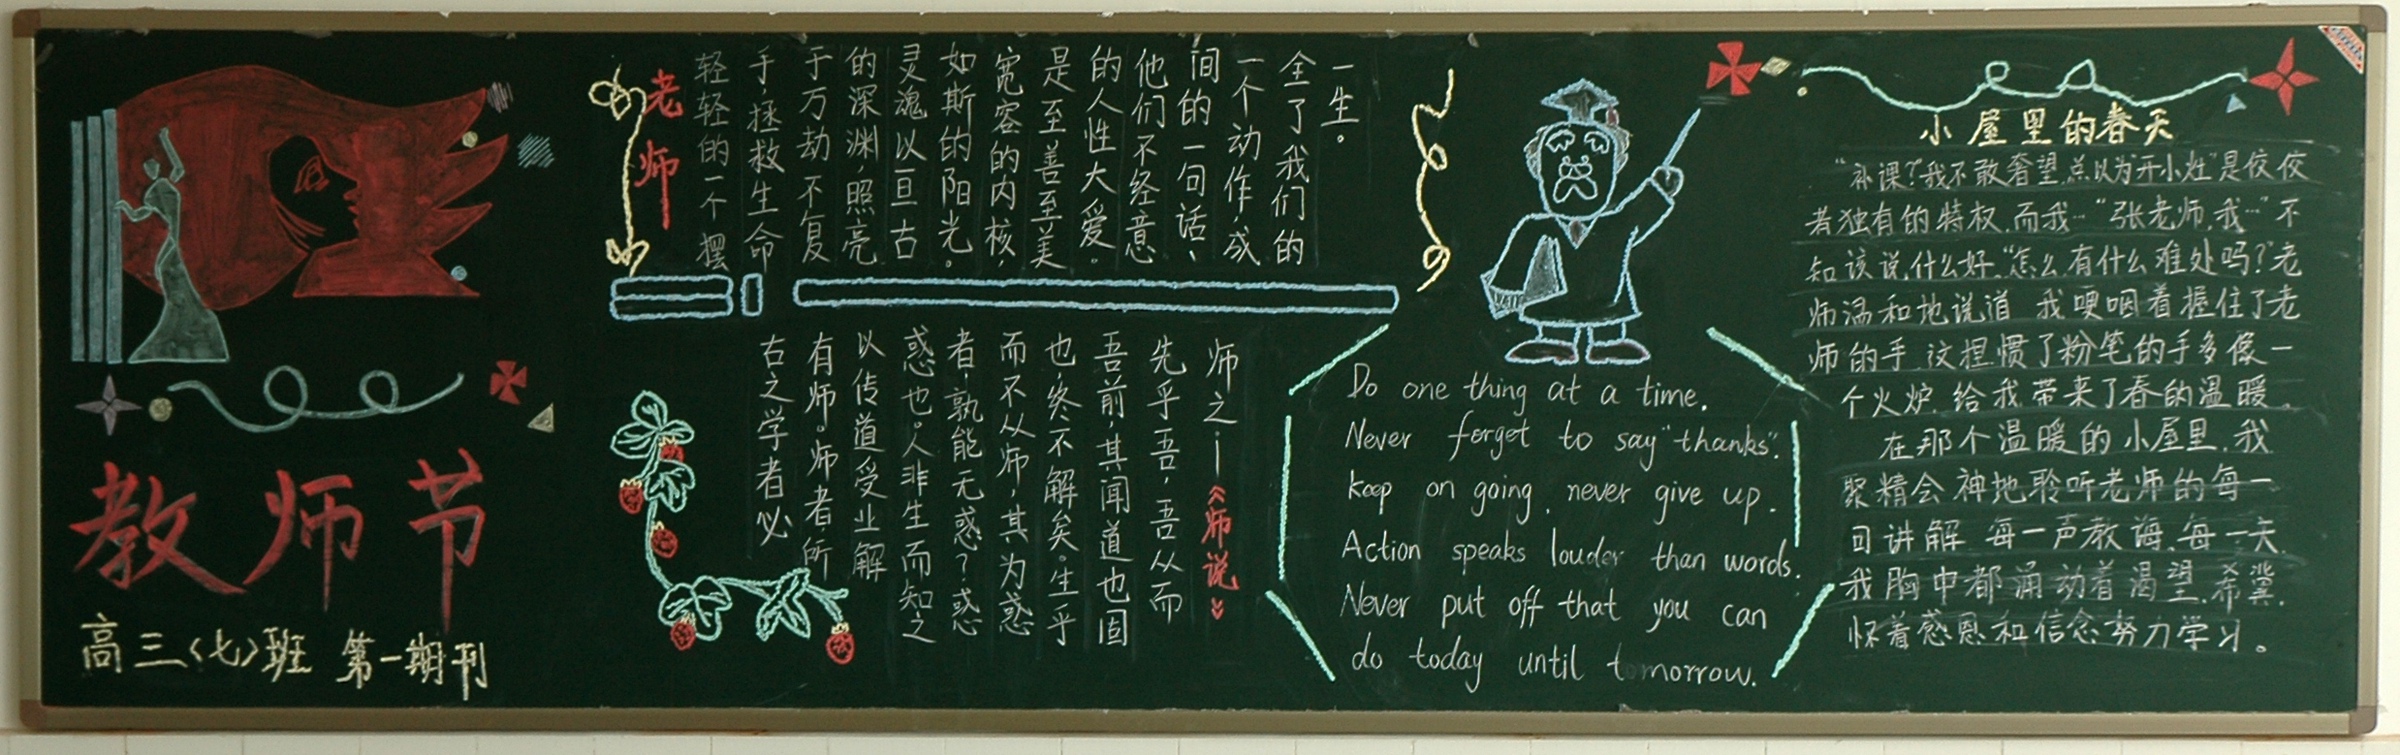 教师节
高三〈七〉班 第一期刊
老师
轻轻的一个摆
手，拯救生命
于万劫不复
的深渊，照亮
灵魂以亘古
如斯的阳光。
宽容的内核，
是至善至美
的人性大爱。
他们不经意
间的一句话、
一个动作，成
全了我们的
一生。
古之学者必
有师。师者，所
以传道受业解
惑也。人非生而知之
者，孰能无惑？惑
而不从师，其为惑
也终不解矣。生乎
吾前，其闻道也固
先乎吾，吾从而
师之.—《师说》
Do one thing at a time.
Never forget to say "thanks".
keep on going, never give up.
Action speaks louder than words.
Never put off that you can
do today until tomorrow.
小屋里的春天
“补课？”我不敢奢望，总以为“开小灶”是佼佼
者独有的特权，而我…“张老师，我…”不
知该说什么好，“怎么有什么难处吗？”老
师温和地说道 我哽咽着握住了老
师的手，这捏惯了粉笔的手多像一
个火炉，给我带来了春的温暖。
在那个温暖的小屋里，我
聚精会神地聆听老师的每一
句讲解 每一声教诲，每一天，
我胸中都涌动着渴望，希冀，
怀着感恩和信念努力学习。